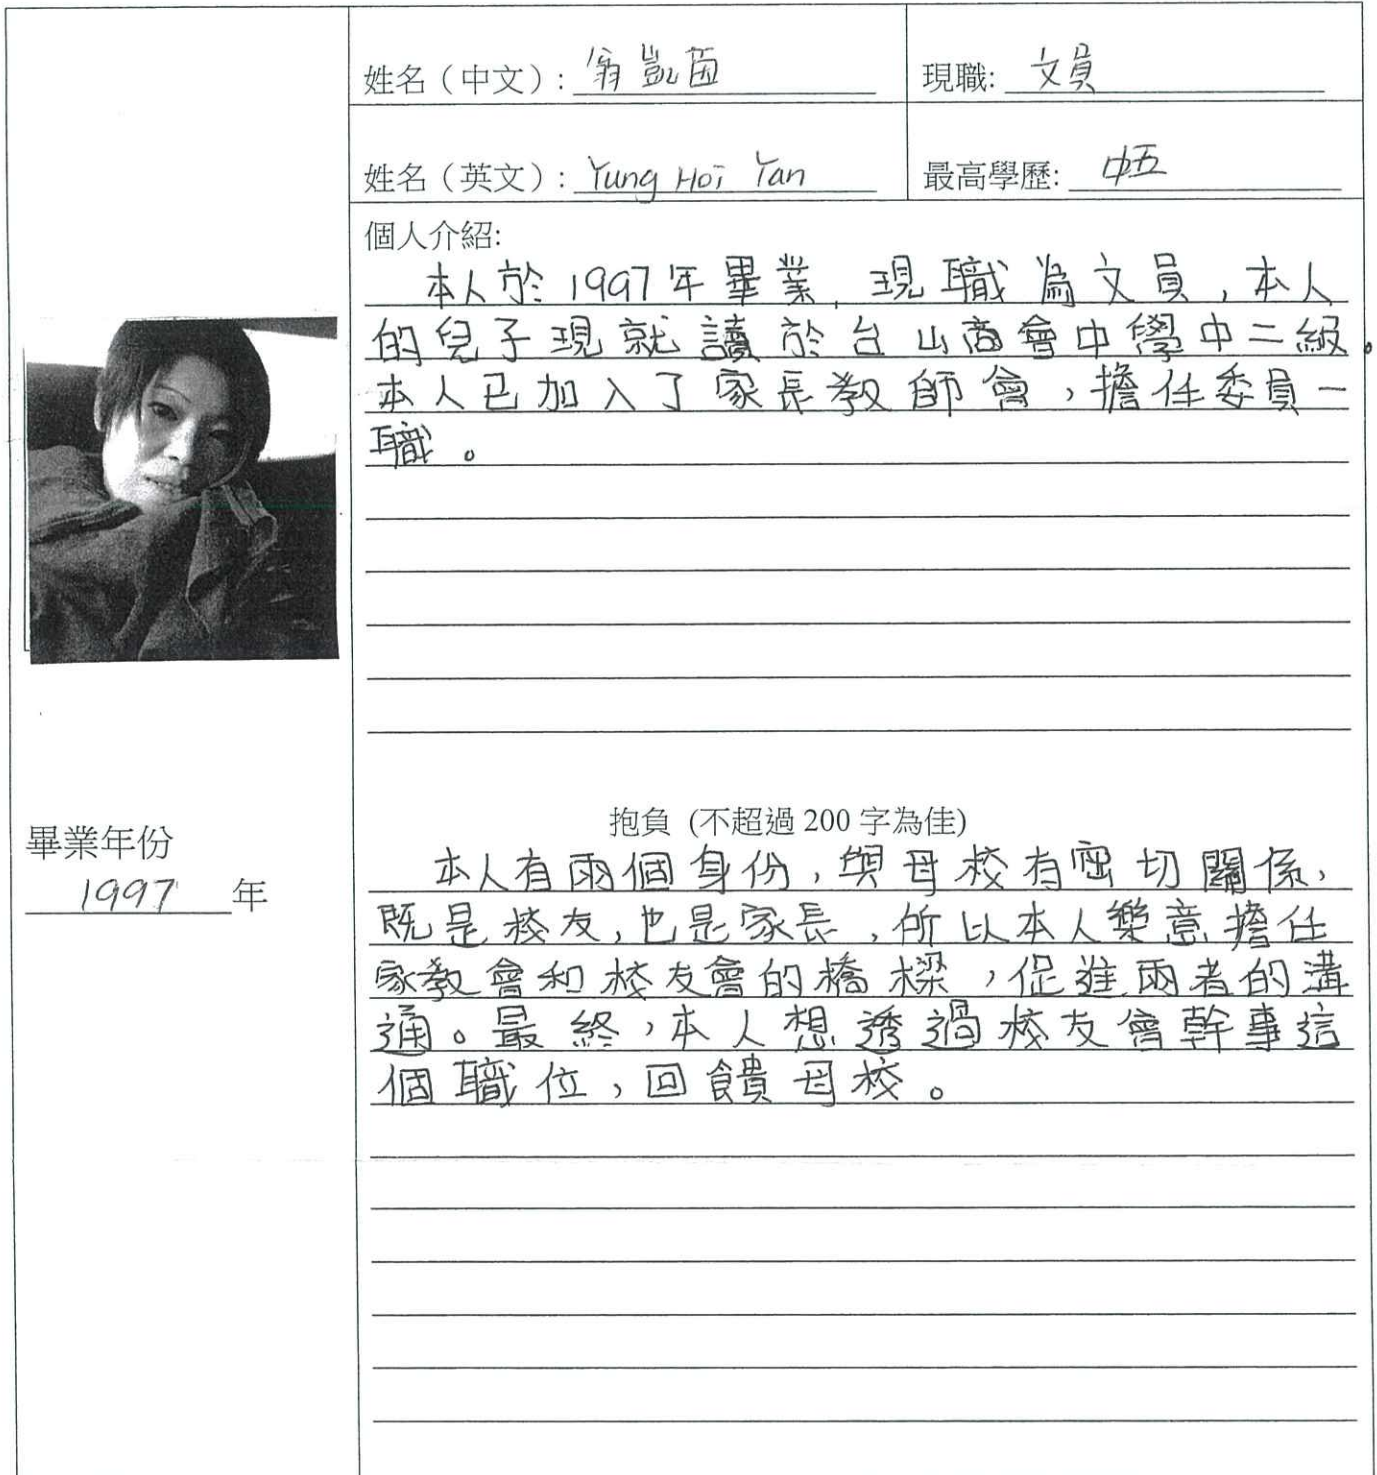 姓名（中文）: 翁凱茵
現職: 文員
姓名（英文）: Yung Hoi Yan
最高學歷: 中五
個人介紹:
本人於1997年畢業, 現職為文員, 本人
的兒子現就讀於台山商會中學中二級。
本人已加入了家長教師會，擔任委員一
職。
畢業年份
1997 年
抱負 (不超過 200 字為佳)
本人有兩個身份, 與母校有密切關係,
既是校友, 也是家長, 所以本人樂意擔任
家教會和校友會的橋樑，促進兩者的溝
通。最終，本人想透過校友會幹事這
個職位，回饋母校。